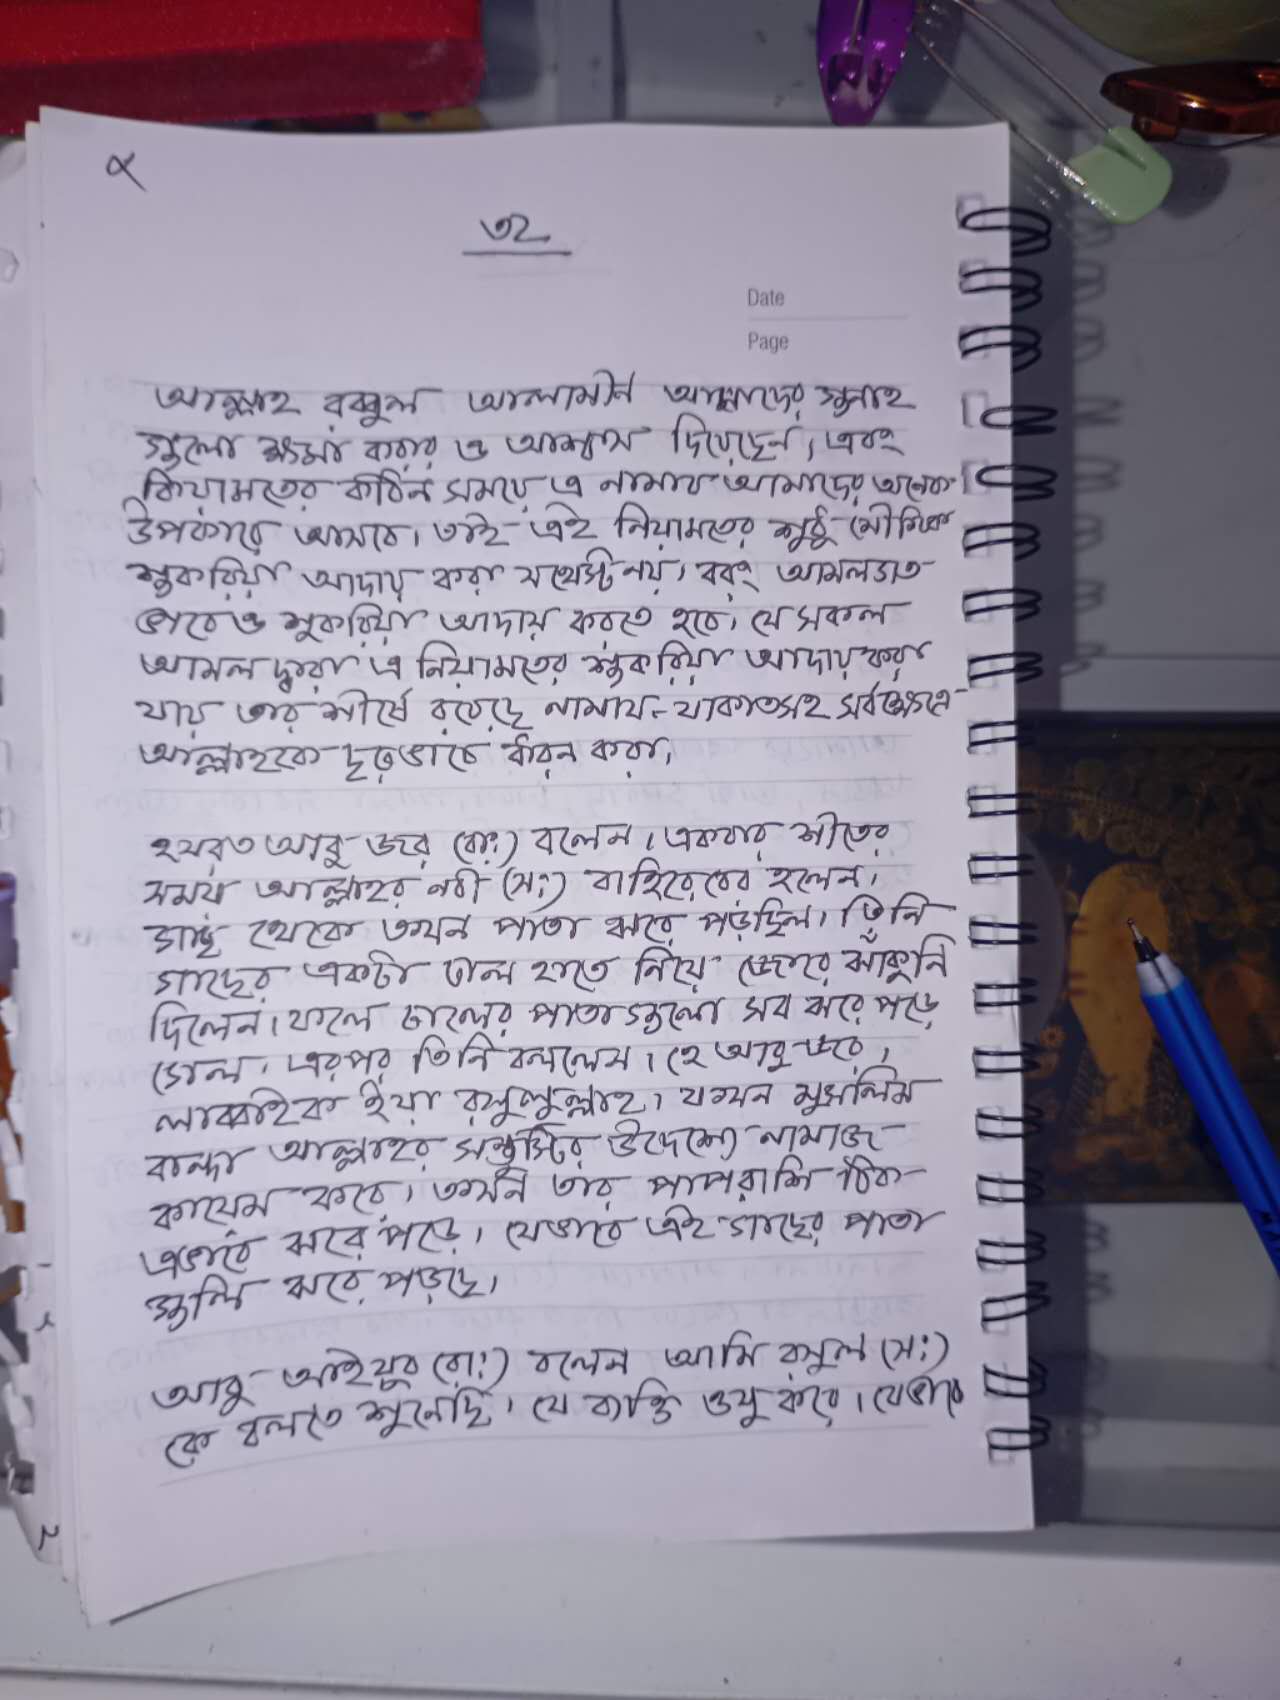 ৫
৩২
Date
Page
আল্লাহ রব্বুল আলামীন আমাদের গুনাহ
গুলো ক্ষমা করার ও আশ্বাস দিয়েছেন, এবং
কিয়ামতের কঠিন সময়ে এ নামায আমাদের অনেক
উপকারে আসবে। তাই এই নিয়ামতের শুধু মৌখিক
শুকরিয়া আদায় করা যথেস্ট নয়। বরং আমলগত
ভাবেও শুকরিয়া আদায় করতে হবে। যে সকল
আমল দ্বারা এ নিয়ামতের শুকরিয়া আদায় করা
যায় তার শীর্ষে রয়েছে নামায-যাকাতসহ সর্বক্ষেত্রে
আল্লাহকে দৃঢ়ভাবে ধারন করা।
হযরত আবু জর (রাঃ) বলেন। একবার শীতের
সময় আল্লাহর নবী (সঃ) বাহিরে বের হলেন।
গাছ থেকে তখন পাতা ঝরে পড়ছিল। তিনি
গাছের একটা ডাল হাতে নিয়ে জোরে ঝাঁকুনি
দিলেন। ফলে ডালের পাতাগুলো সব ঝরে পড়ে
গেল। এরপর তিনি বললেন। হে আবু জর,
লাব্বাইক ইয়া রসুলুল্লাহ। যখন মুসলিম
বান্দা আল্লাহর সন্তুস্টির উদ্দেশ্যে নামাজ
কায়েম করে, তখন তার পাপরাশি ঠিক
এভাবে ঝরে পড়ে। যেভাবে এই গাছের পাতা
গুলি ঝরে পড়ছে।
আবু আইয়ুব (রাঃ) বলেন আমি রসুল (সঃ)
কে বলতে শুনেছি। যে ব্যক্তি ওযু করে। যেভাবে